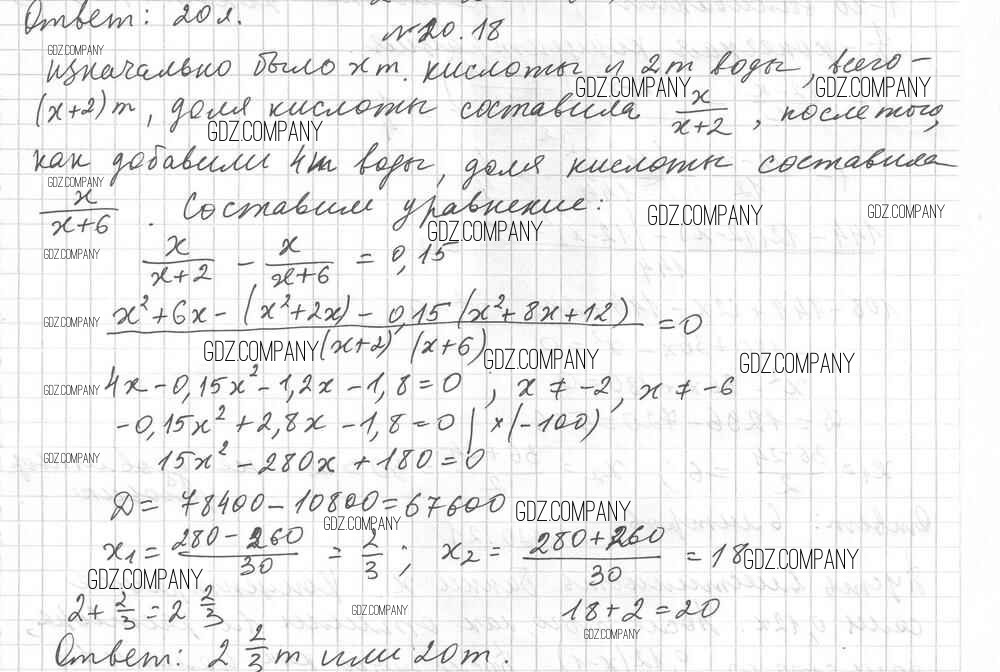 Ответ: 20 л.
№20.18
GDZ.COMPANY
изначально было x т. кислоты и 2 т воды, всего –
GDZ.COMPANY GDZ.COMPANY
(x+2) т, доля кислоты составила x/(x+2), после того,
GDZ.COMPANY
как добавили 4 т воды, доля кислоты составила
GDZ.COMPANY
x/(x+6). Составим уравнение:
GDZ.COMPANY GDZ.COMPANY
GDZ.COMPANY
GDZ.COMPANY
x/(x+2) - x/(x+6) = 0,15
GDZ.COMPANY
(x²+6x-(x²+2x)-0,15(x²+8x+12))/((x+2)(x+6)) = 0
GDZ.COMPANY GDZ.COMPANY GDZ.COMPANY
GDZ.COMPANY
4x-0,15x²-1,2x-1,8=0 ; x≠-2, x≠-6
-0,15x²+2,8x-1,8=0 | ×(-100)
GDZ.COMPANY
15x²-280x+180=0
D= 78400-10800=67600
GDZ.COMPANY
GDZ.COMPANY
x₁ = (280-260)/30 = 2/3 ; x₂ = (280+260)/30 = 18
GDZ.COMPANY
GDZ.COMPANY
2+2/3=2 2/3 18+2=20
GDZ.COMPANY
GDZ.COMPANY
Ответ: 2 2/3 т или 20 т.